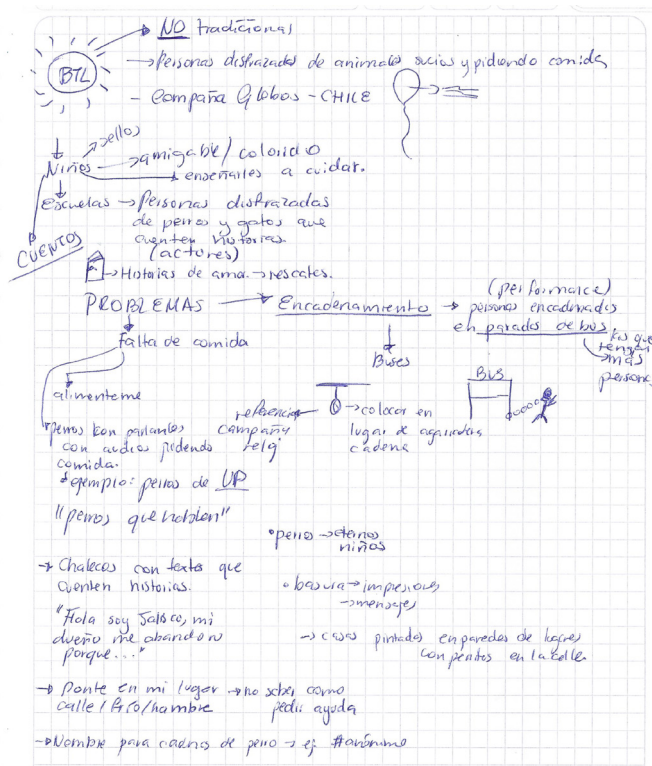 NO tradicional
BTL
→ Personas disfrazadas de animales sucios y pidiendo comida
- Campaña Globos - CHILE
sellos
Niños → amigable / colorido
enseñarles a cuidar.
Escuelas → Personas disfrazadas
de perros y gatos que
cuenten historias.
(actores)
CUENTOS
→ Historias de amor → rescates.
(performance)
PROBLEMAS → Encadenamiento → personas encadenadas
en paradas de bus.
los que
tengan
más
persona
falta de comida
Buses
BUS
alimenteme
referencia
campaña
reloj
→ colocar en
lugar de agarradera
cadena
perros con parlantes
con audios pidiendo
comida.
ejemplo: perros de UP
"perros que hablan"
• perros → eternos
niños
→ Chalecos con textos que
cuenten historias.
• basura → impresiones
→ mensajes
"Hola soy Jalisco, mi
dueño me abandonó
porque..."
→ casas pintadas en paredes de lugares
con perritos en la calle.
→ Ponte en mi lugar → no saber como
calle / frío / hambre pedir ayuda
→ Nombre para cadenas de perro → ej: #anónimo